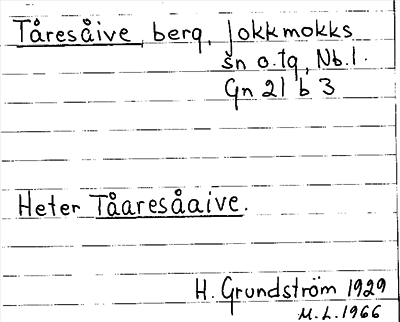 Tåresåive, berg, Jokkmokks
sn o. tg, Nb. l.
Gn 21 b 3
Heter Tåaresåaive.
H. Grundström 1929
M. L. 1966